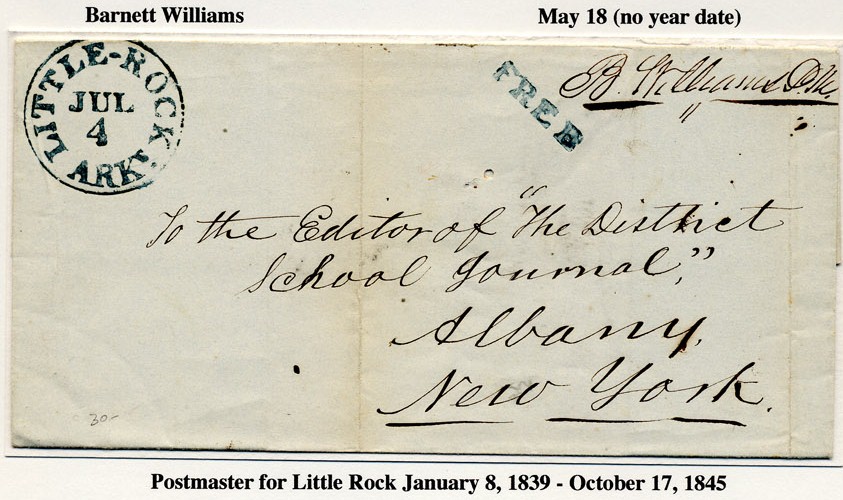 Barnett Williams
May 18 (no year date)
LITTLE-ROCK ARK.
JUL
4
FREE
B. Williams P.M.
To the Editor of "The District
School Journal,"
Albany,
New York.
30-
Postmaster for Little Rock January 8, 1839 - October 17, 1845